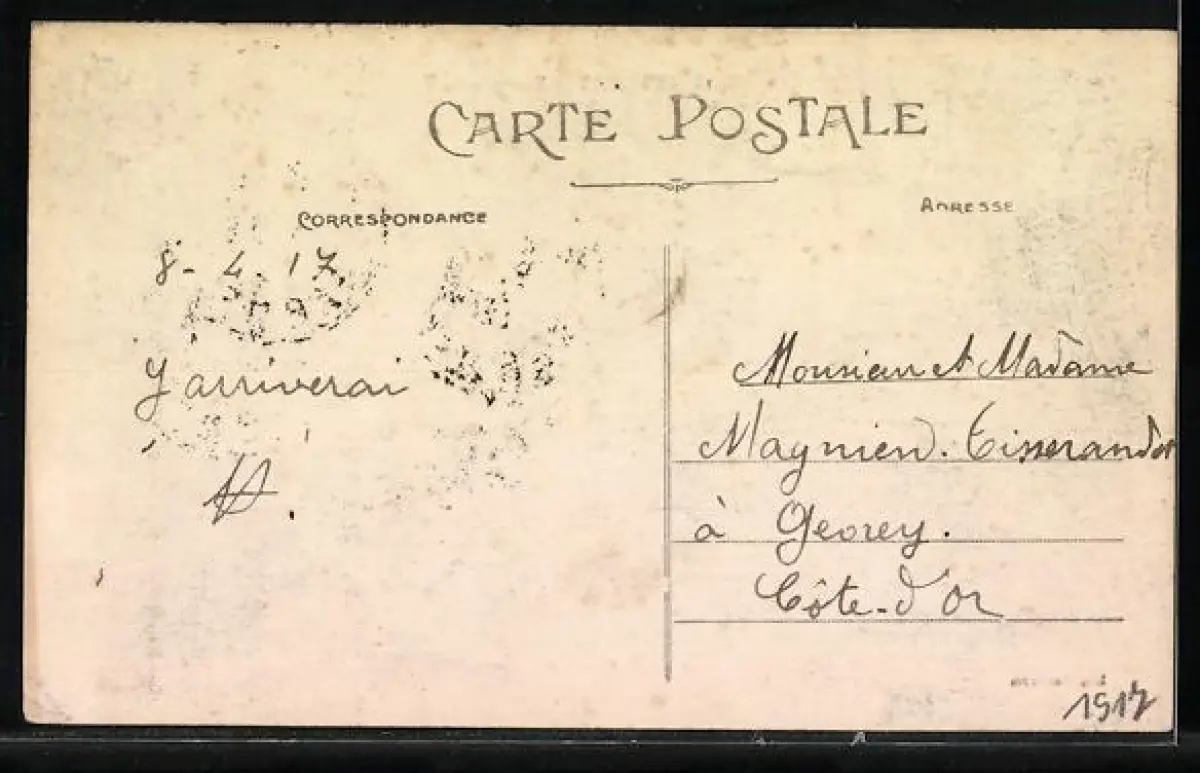 CARTE POSTALE
CORRESPONDANCE
ADRESSE
8-4.17.
J'arriverai
Monsieur et Madame
Magnien. Tisserandot
à Gevrey.
Côte-d'Or
1917